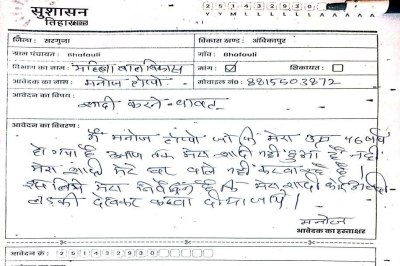 सुशासन
तिहार
2 5 1 4 3 2 9 3 0
जिला: सरगुजा
विकास खण्ड: अंबिकापुर
ग्राम पंचायत: Bhafouli
गाँव: Bhafouli
विभाग का नाम: महिला बाल विकास
मांग: ☑ शिकायत: ☐
आवेदक का नाम: मनोज टोप्पो
मोबाइल नं०: 8815503872
आवेदन का विषय:
शादी करने बाबत
आवेदन का विवरण:
मैं मनोज टोप्पो जो कि मेरा उम्र 46 वर्ष
हो गया है आज तक मेरा शादी नहीं हुआ है
मेरा शादी मेरे घर वाले नहीं करवा रहे है
इस लिये मेरा निवेदन है कि मेरा शादी कोई
लड़की देखकर करवा दीया जाये।
मनोज
आवेदक का हस्ताक्षर
आवेदन क्रं: 2 5 1 4 3 2 9 3 0